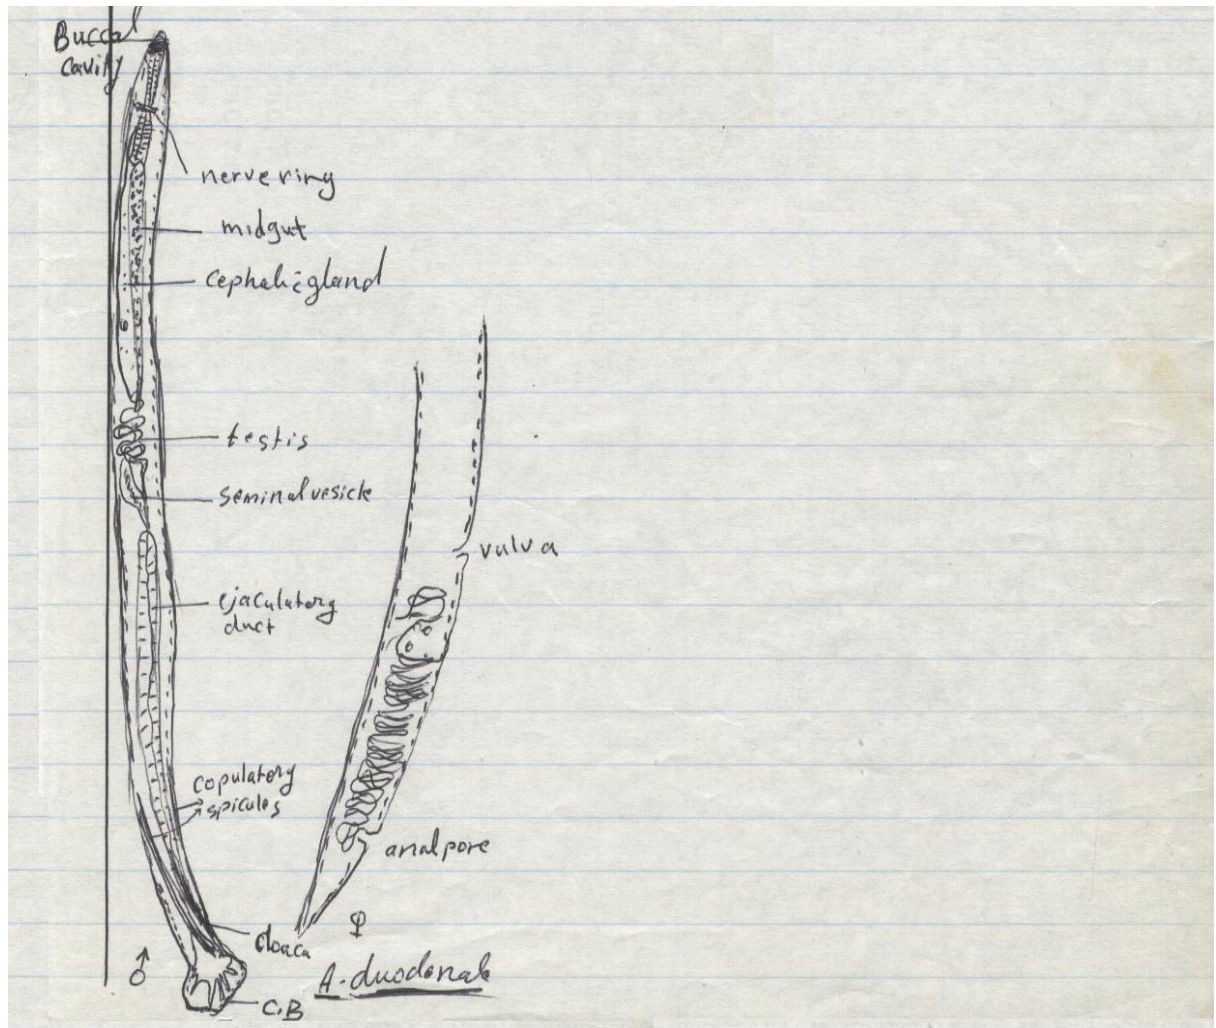 Buccal
cavity
nerve ring
midgut
cephalic gland
testis
seminal vesicle
vulva
ejaculatory
duct
copulatory
spicules
anal pore
cloaca
♀
♂
A. duodenale
C.B